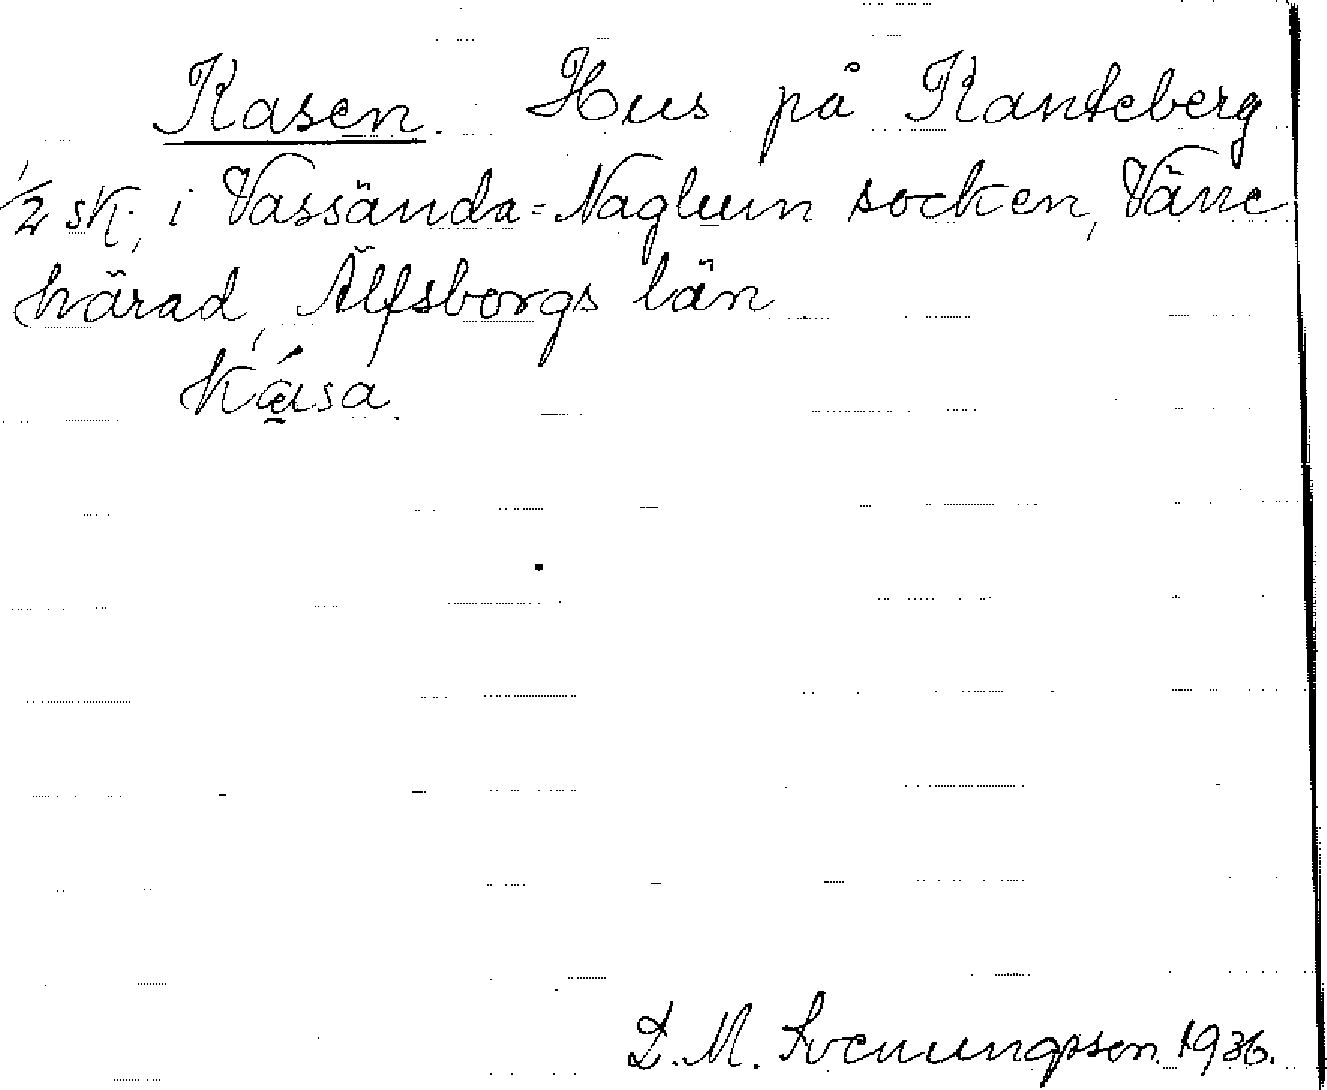 Kasen. Hus på Kanteberg
1/2 sk., i Vassända-Naglum socken, Väne
härad, Älfsborgs län
Ká̱sa.
D. M. Svenungsson 1936.